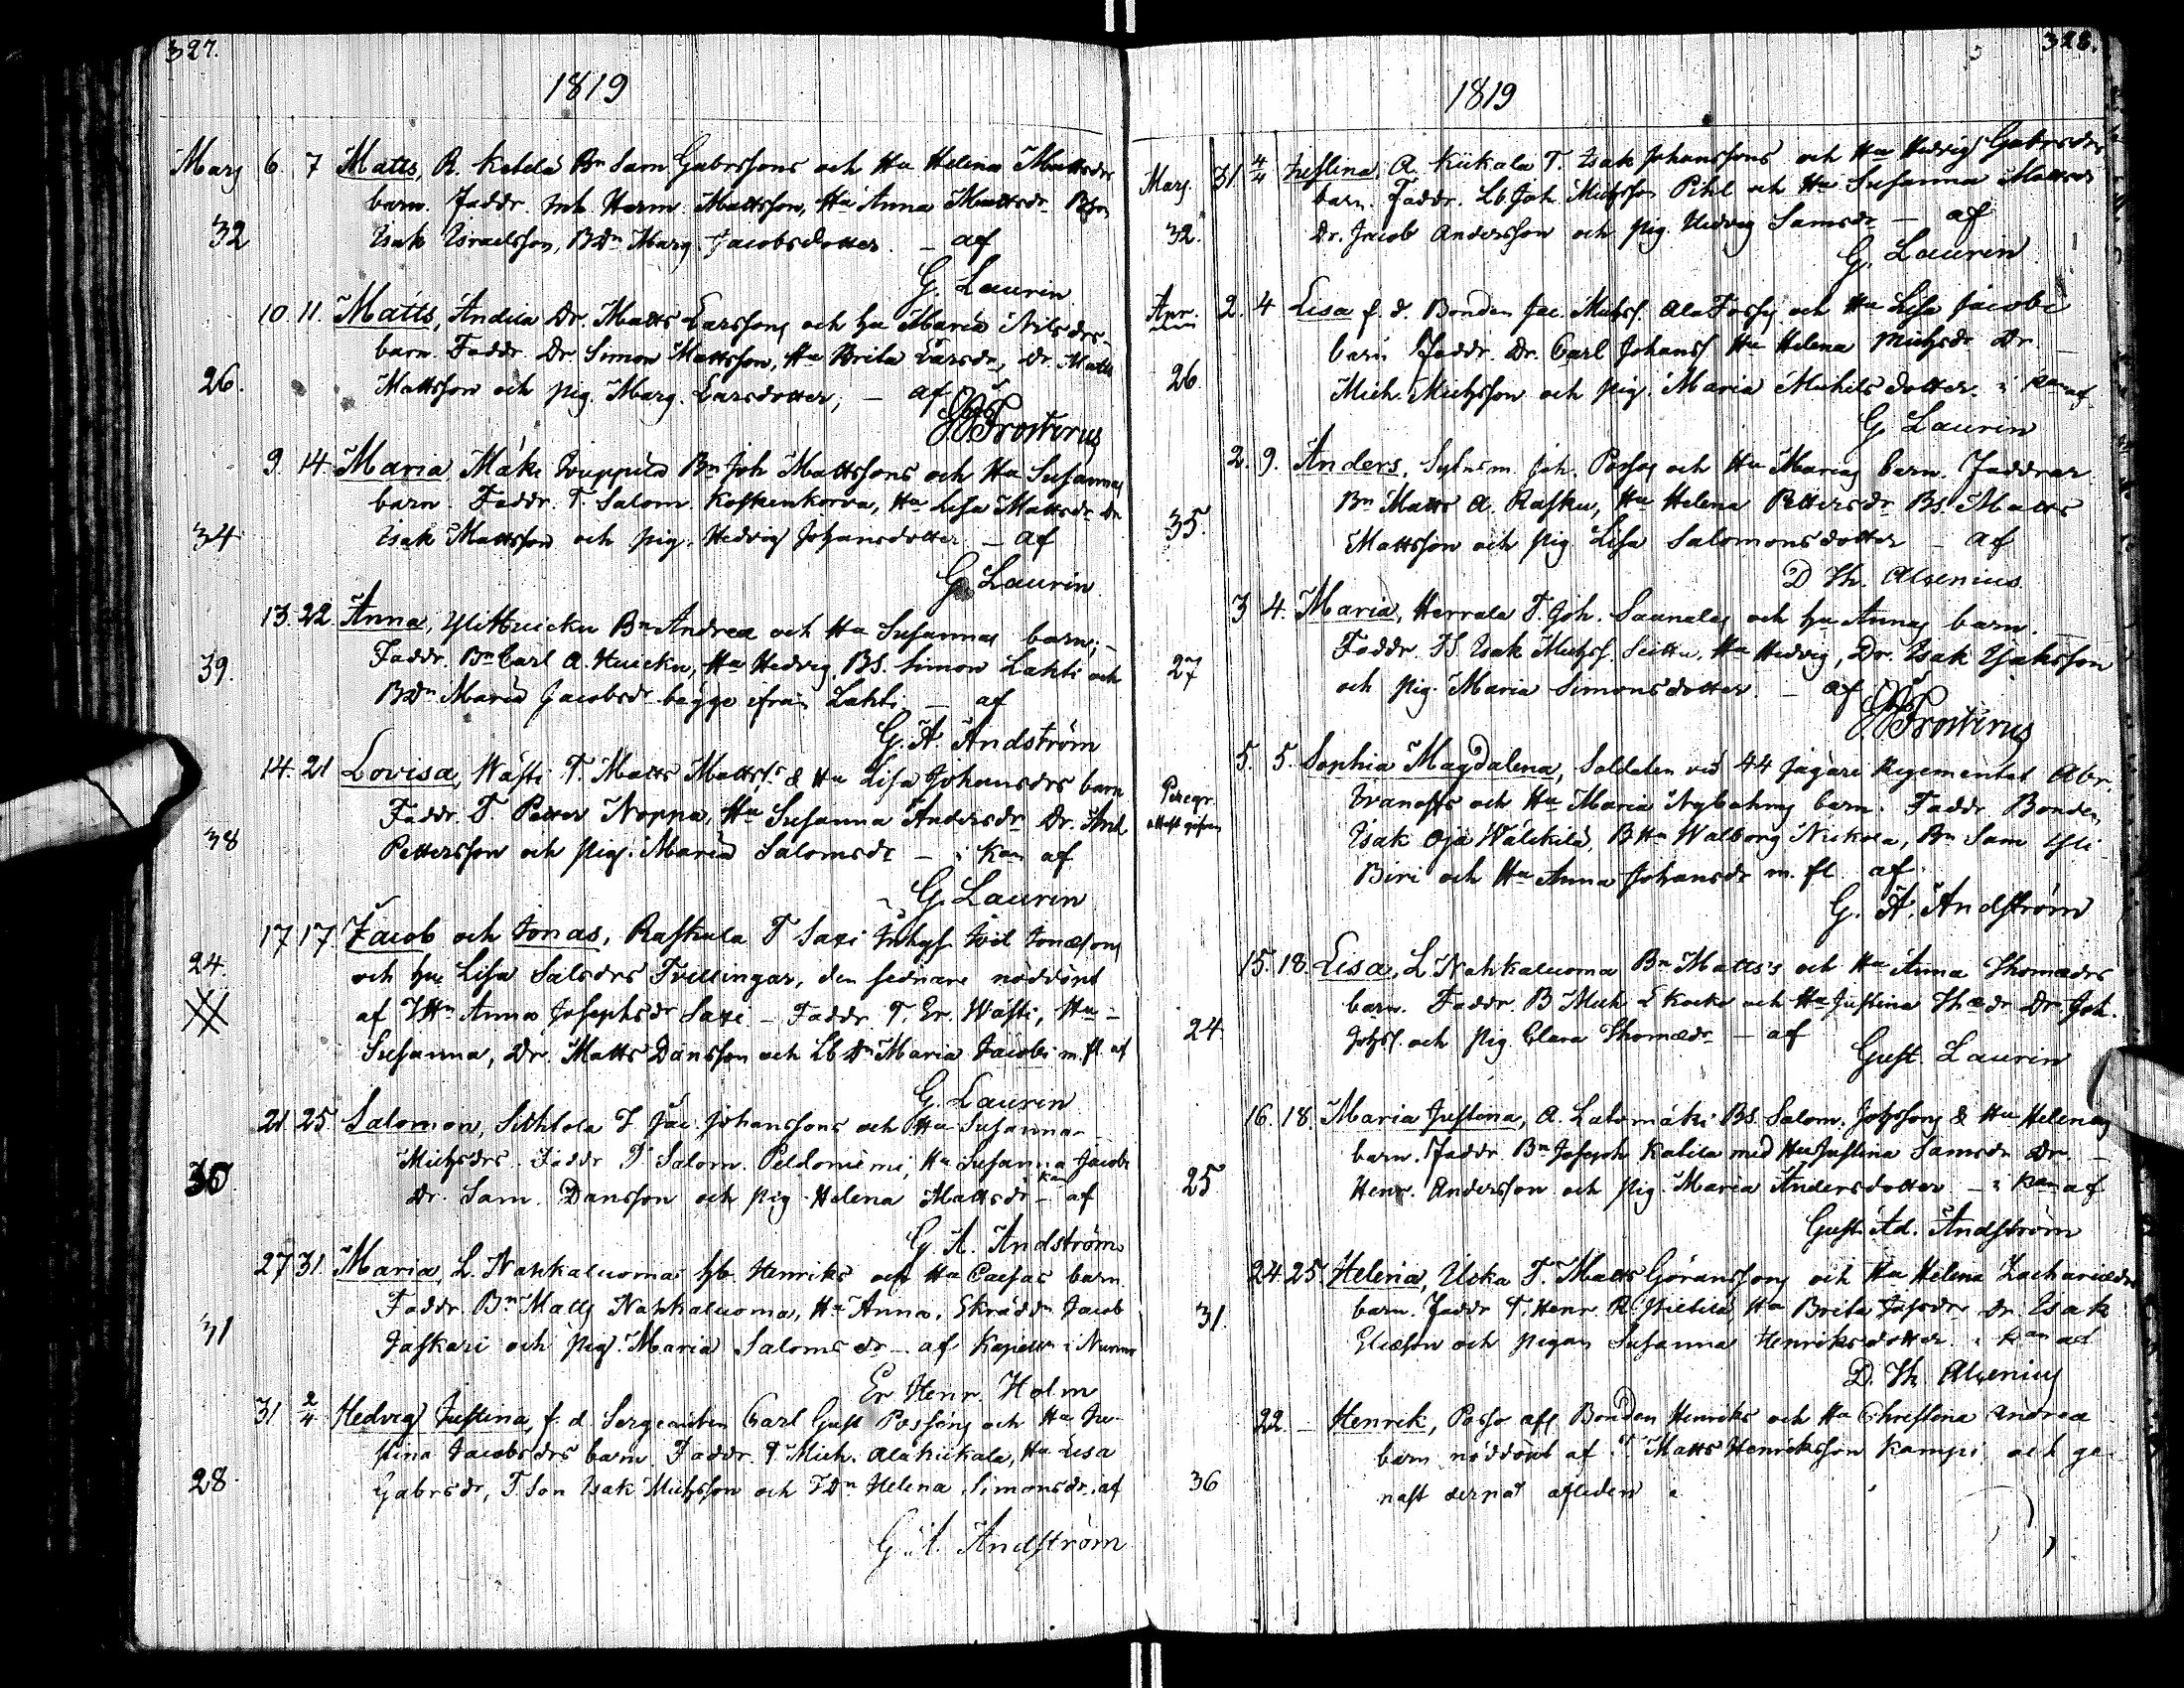 327.
1819
Marz 6. 7 Matts, R. Ketela Bn Sam Gabrssons och Hu Helena Mattsdrs
barn. Faddr. Inh. Herm. Mattsson, Hu Anna Mattsdr
32 Isak Israelsson, BDr Marg. Jacobsdotter. – af
G. Laurin
10 11. Matts, Andila Dr. Matts Larssons och Hu Maria Nilsdrs
barn. Faddr. Dr. Simon Mattsson, Hu Brita Larsdr, Dr. Matts
26. Mattsson och pig. Marg. Larsdotter, – af
Frosterus
9 14. Maria Mäki Luppula Bn Joh Mattssons och Hu Susannas
barn. Faddr. T. Salom. Koskenkorva, Hu Lisa Mattsdr Dr
34 Isak Mattsson och pig. Hedvig Johansdotter – af
G. Laurin
13. 22. Anna, Yli Huicku Bn Andrea och Hu Susannas barn; –
Faddr. Bn Carl A. Huicku, Hu Hedvig, BS. Simon Lahti och
39. BDr Maria Jacobsdr begge ifrån Lahti – af
G. A. Andström
14. 21 Lovisa, Wästi T. Matts Mattss & Hu Lisa Johansdrs barn
Faddr. T. Petter Noppa, Hu Susanna Andersdr Dr. And.
38 Pettersson och pig. Maria Salomsdr – i Kan af
G. Laurin
17 17. Jacob och Jonas, Raskula T Saxi Inhys
24. och Hu Lisa Salsdrs Tvillingar, den sednare nöddönt
af Anna Josephsdr Saxi – Faddr. T. Er. Wästi, Hu –
Susanna, Dr. Matts Dansson och Maria Jacobs m. fl. af
G. Laurin
21 25. Salomon, T Jac. Johanssons och Hu Susanna
Michsdrs Faddr T Salom. Peldoniemi, Hu Susanna Jacobs
30 Dr. Sam. Dansson och pig. Helena Mattsdr – i Kan af
G. A. Andström
27 31. Maria, L. Nahkaluoma Henriks och Hu Caisas barn
Faddr. Bn Matts Nahkaluoma, Hu Anna, Skräddn Jacob
31 Jaskari och pig. Maria Salomsdr – af Kapelln i Nurmo
Er Henr. Holm
31 2/4 Hedvig Justina, f. d. Sergeanten Carl Gust Possons och Hu Ju-
stina Jacobsdrs barn Faddr. T Mich. Alakiikala, Hu Lisa
28. Gabrsdr, T. Son Isak Michsson och TDr Helena Simonsdr. af
G. A. Andström
328.
1819
Marz. 31 4/4 Justina, A. Kiikala T. Isak Johanssons och Hu Hedvig Gabrsdrs
barn. Faddr. Lb. Joh. Michsson Pihl och Hu Susanna Mattsdr
32. Dr. Jacob Andersson och pig. Hedvig Samsdr – af
G. Laurin
Apr. 2. 4 Lisa f. d. Bonden Jac. Michss. och Hu Lisa Jacobs
barn Faddr. Dr. Carl Johanss. Hu Helena Michsdr Dr. –
26. Mich. Michsson och pig. Maria Michelsdotter. i Kan af
G. Laurin
2. 9. Anders, Joh. Possos och Hu Marias barn. Faddrar
Bn Matts A. Rasku, Hu Helena Pettersdr BS. Matts
35. Mattsson och pig Lisa Salomonsdotter – af
D Th. Alcenius
3 4. Maria, Herrala T. Joh. Saanalas och Hu Annas barn.
Faddr. TS. Isak Michss. Hu Hedvig, Dr. Isak Isaksson
27 och pig. Maria Simonsdotter. – af
Frosterus
5. 5. Sophia Magdalena, Soldaten vid 44 Jägare Regementet Abr.
Peregr. Ivanoffs och Hu Maria barn. Faddr. Bonden
Isak Oja Wälikilä, Walborg Nickola, Bn Sam Yli
Biri och Hu Anna Johansdr m. fl. af
G. A. Andström
15. 18. Lisa, L Nahkaluoma Bn Matts's och Hu Anna Thomædrs
barn. Faddr. B Mich och Hu Justina Thædr Dr. Joh.
24. Johss. och pig Clara Thomædr – af
Gust. Laurin
16. 18. Maria Justina, A. Latomäki BS. Salom. Johssons & Hu Helenas
barn. Faddr Bn Joseph Katila med Hu Justina Samsdr Dr. –
25 Henr. Andersson och pig. Maria Andersdotter – i Kan af
Gust. Ad. Andström
24. 25. Helena, Ucka T. Matts Göranssons och Hu Helena Zachariædrs
barn. Faddr T. Henr. Hu Brita Johsdr Dr Isak
31. Eliæson och pigan Susanna Henriksdotter i Kan af
D. Th. Alcenius
22. – Henrik, Posso afl. Bonden Henriks och Hu Christina Andreæ
barn nöddöpt af T Matts Henriksson Kampi, och ge-
36 nast derpå afliden